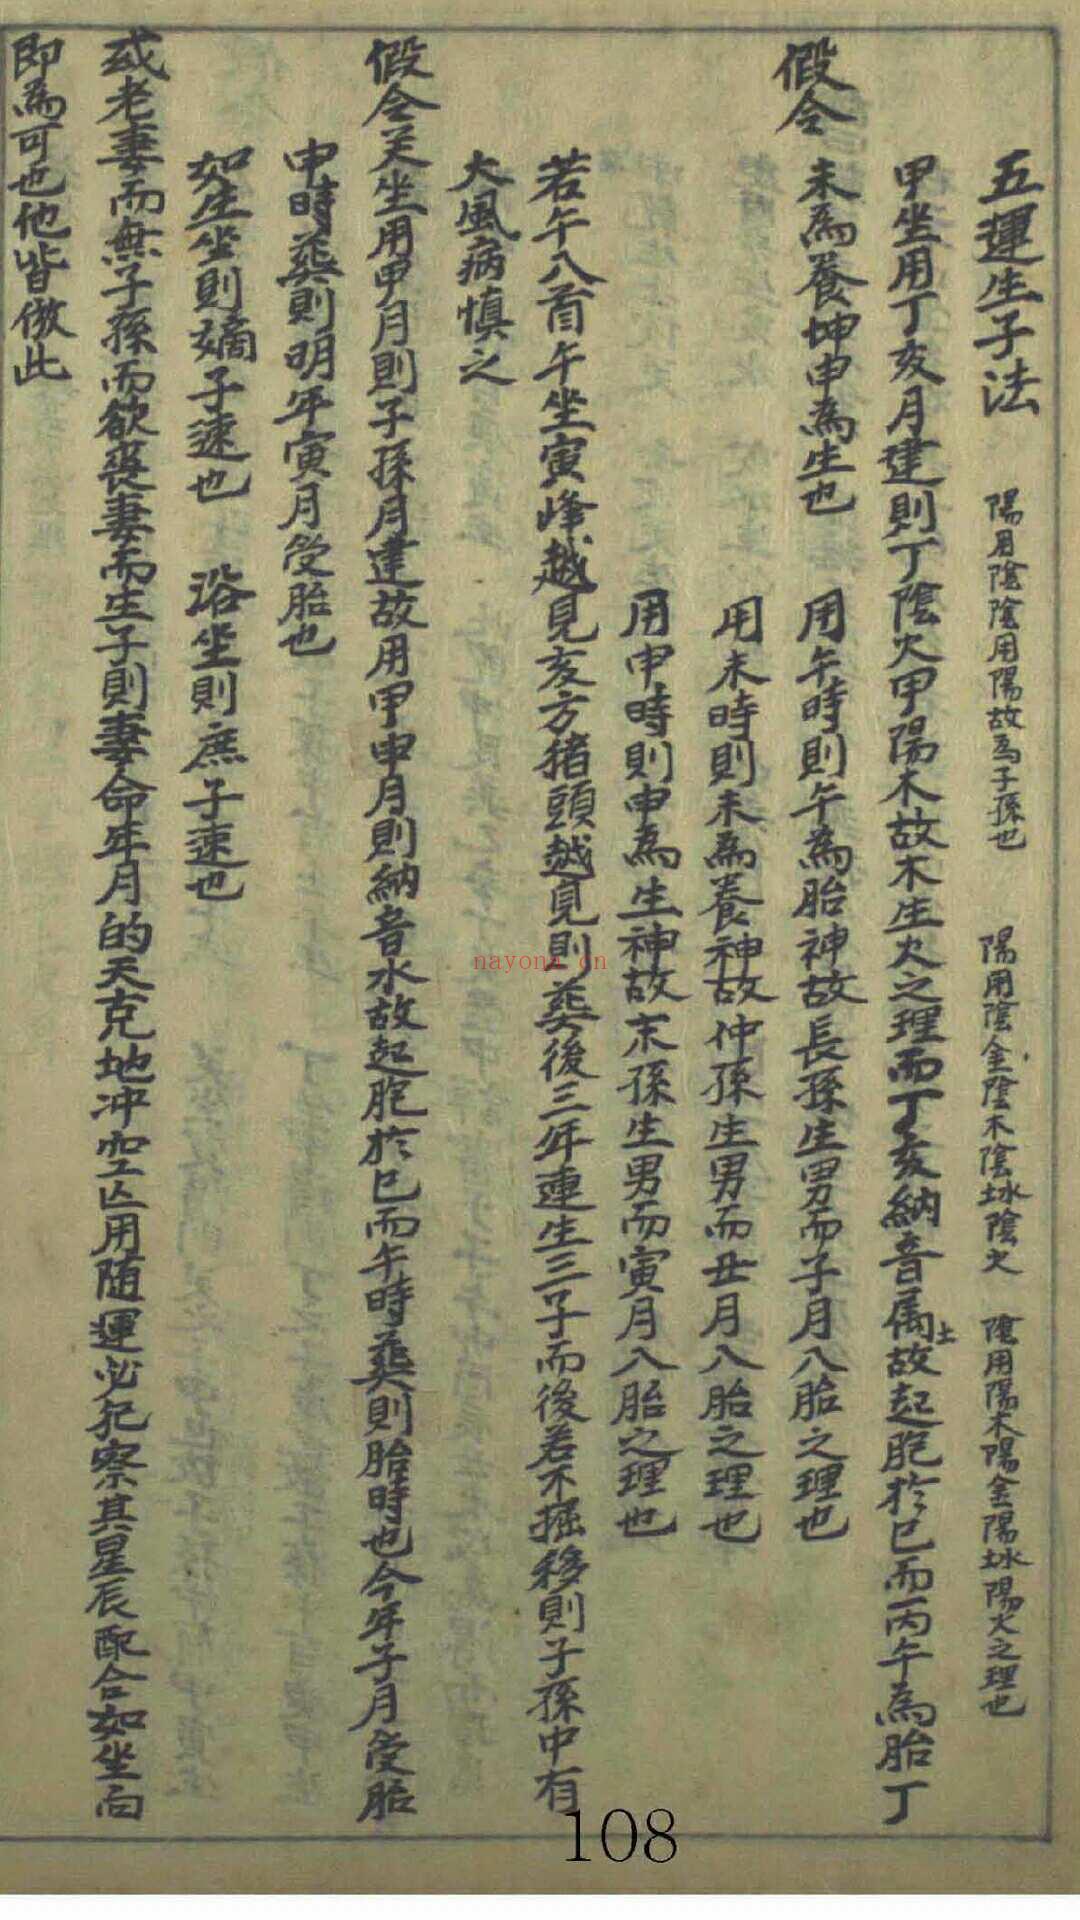 五運生子法 陽用陰陰用陽故為子孫也 陽用陰金陰木陰水陰火 陰用陽木陽金陽水陽火之理也
假令
甲坐用丁亥月建則丁陰火甲陽木故木生火之理而丁亥納音属土故起胞於巳而丙午為胎丁
未為養坤申為生也 用午時則午為胎神故長孫生男而子月入胎之理也
用未時則未為養神故仲孫生男而丑月入胎之理也
用申時則申為生神故末孫生男而寅月入胎之理也
若午入首午坐寅峰越見亥方猪頭越見則葬後三年連生三子而後若不掘移則子孫中有
大風病慎之
假令艮坐用甲月則子孫月建故用甲申月則納音水故起胞於巳而午時葬則胎時也今年子月受胎
申時葬則明年寅月受胎也
如生坐則嫡子速也 浴坐則庶子速也
或老妻而無子孫而欲丧妻而生子則妻命年月的天克地冲空亡用随運必犯察其星辰配合如坐向
即為可也他皆倣此
nayona.cn
108